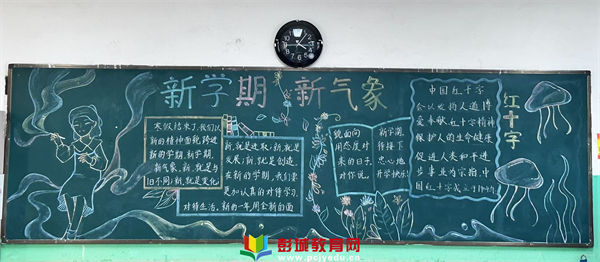 新学期 新气象
寒假结束了,我们以
新的精神面貌,跨进
新的学期,新学期,
新气象,新,就是与
旧不同;新,就是变化,
新,就是进取;新,就是
发展;新,就是创造。
在新的学期,我们要
更加认真的对待学习、
对待生活,新的一年,用全新的面
貌面向
周总度对
来的日子,
对你说,
新学期,
衔接下
忠心地
开学快乐!
红十字
中国红十字
会以发扬人道博
爱奉献红十字精神
保护人的生命健康
促进人类和平进
步事业为宗指。中
国红十字成立于1904年
彭城教育网
www.pcjyedu.cn